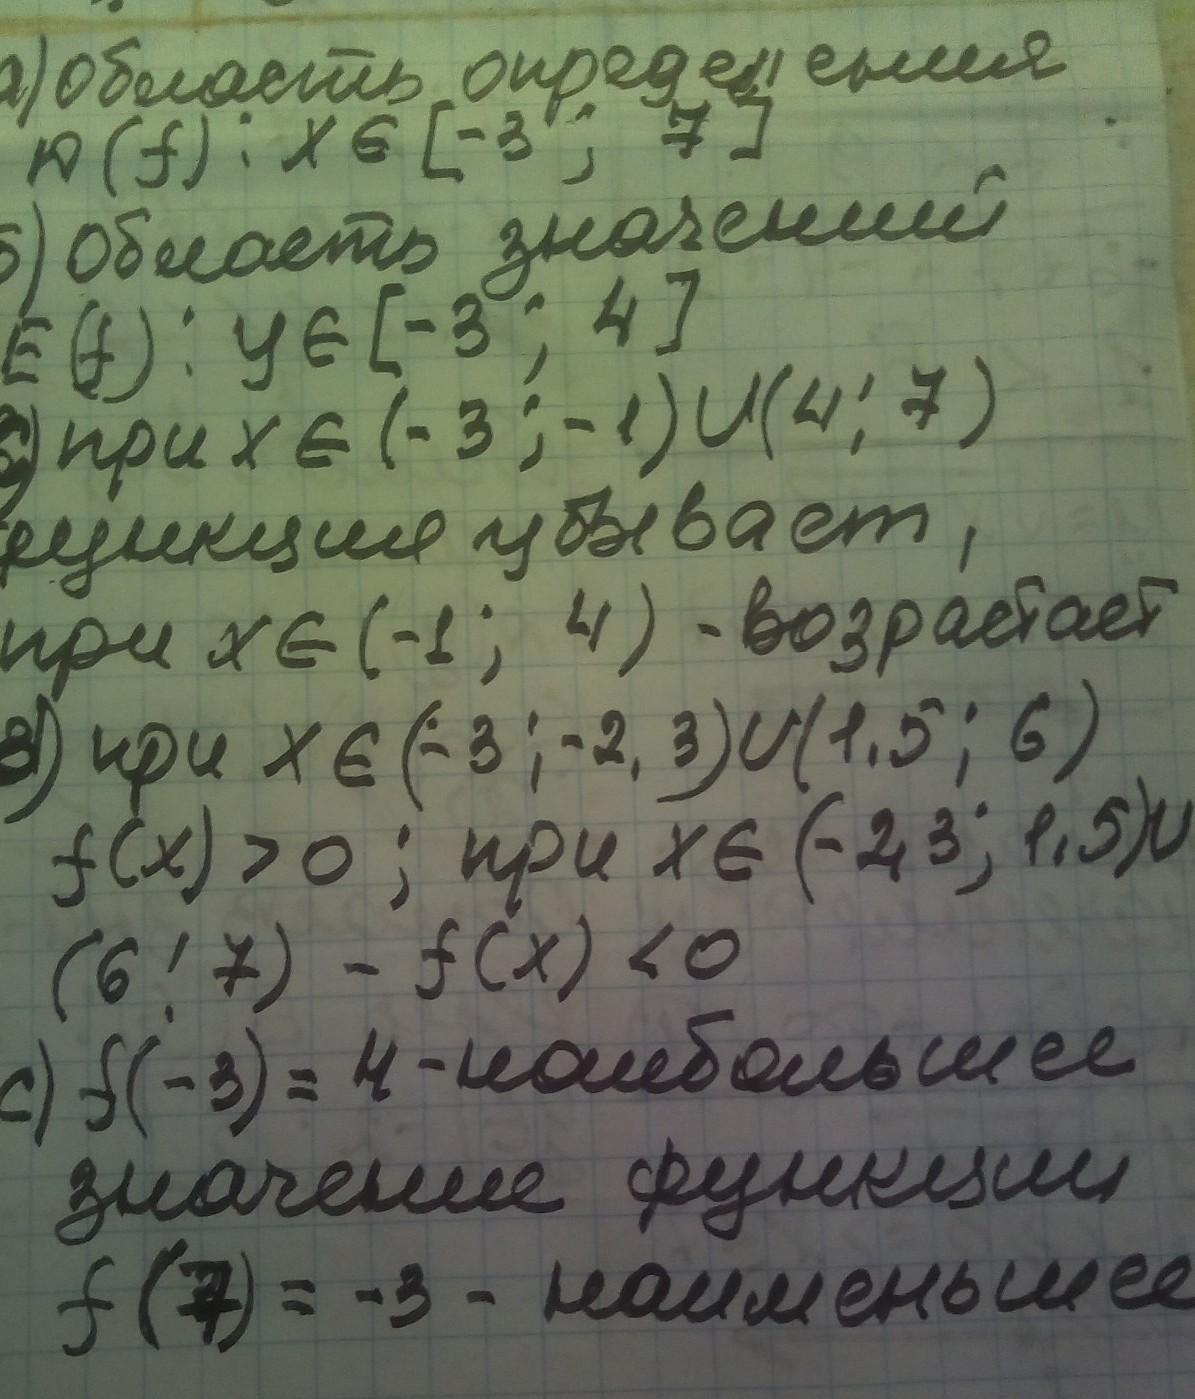 а) Область определения
D(f): x∈[-3; 7]
б) Область значений
E(f): y∈[-3; 4]
в) при x∈(-3; -1)∪(4; 7)
функция убывает,
при x∈(-1; 4) - возрастает
при x∈(-3; -2,3)∪(1,5; 6)
f(x)>0; при x∈(-2,3; 1,5)∪
(6; 7) - f(x)<0
с) f(-3)=4 - наибольшее
значение функции
f(7)= -3 - наименьшее